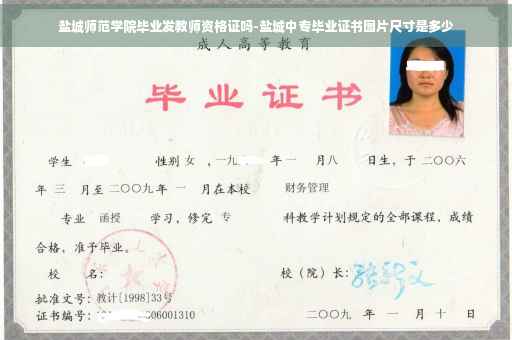 盐城师范学院毕业发教师资格证吗-盐城中专毕业证书图片尺寸是多少
成人高等教育
毕业证书
学生 性别 女 ,一九 年一 月八 日生，于二〇〇六
年 三 月至二〇〇九年 一 月在本校 财务管理
专业 函授 学习，修完 专 科教学计划规定的全部课程，成绩
合格，准予毕业。
校 名: 校（院）长:
批准文号: 教计[1998]33号
证书编号: 06001310 二〇〇九 年 一 月 十 日